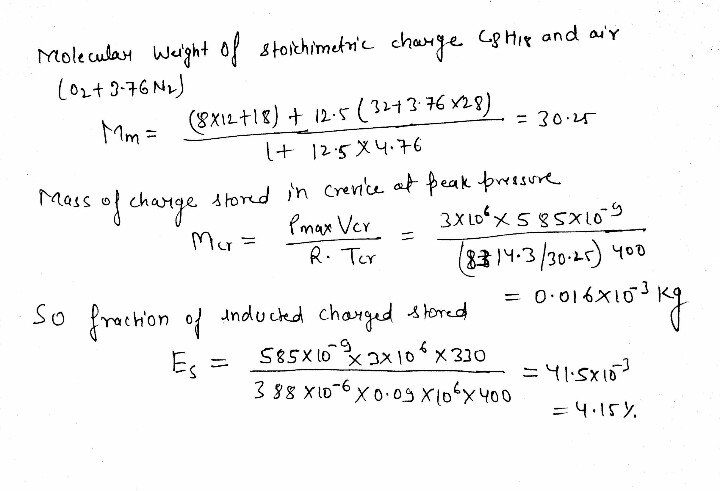 Molecular Weight of stoichimetric charge C8H18 and air
(O2+3.76N2)
Mm = (8X12+18) + 12.5 (32+3.76X28) / 1+ 12.5X4.76 = 30.25
Mass of charge stored in crevice at peak pressure
Mcr = Pmax Vcr / R. Tcr = 3X10^6 X 585X10^-9 / (8314.3/30.25) 400
= 0.016X10^-3 kg
So fraction of inducted charged stored
Es = 585X10^-9 X 3X10^6 X330 / 388 X10^-6 X 0.09 X10^6 X 400 = 41.5X10^-3
= 4.15%